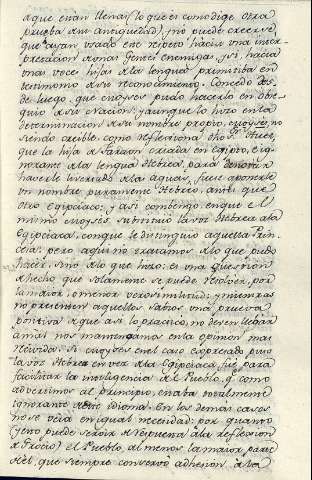 de que están llenas (lo que es como dige otra
prueba de su antiguedad), no puede creerse,
que ayan usado este respeto hacia una inter-
pretacion de una Gente enemiga, y si hacia
unas voces hijas de la lengua primitiva en
testimonio de su reconocimiento. Concedo des-
de luego, que Moyses pudo hacerlo en obse-
quio de su Nacion: y aunque lo hizo en la
determinacion de su nombre propio, Moyse, no
siendo creible, como reflexiona dho Sr. Huet,
que la hija de Faraon criada en Egipto, è ig-
norante de la lengua Hebrea, para denotar
haverle livertado de las aguas, fuese a ponerle
un nombre puramente Hebreo, antes que
otro Egipciaco: y asi combengo en que el
mismo Moyses, substituiò la voz Hebrea a la
Egipciaca, con que le distinguiò aquella Prin-
cesa: pero aqui no tratamos de lo que pudo
hacer, sino de lo que hizo: es una question
de hecho que solamente se puede resolver, por
la maior, ò menor verosimilitud: y mientras
no presenten aquellos sabios una prueva
positiva de que asi lo practicò, no deven llebar
a mal nos mantengamos en la opinion mas
recivida. Si Moyses en el caso expresado puso
la voz Hebrea en vez de la Egipciaca, fue para
facilitar la inteligencia del Pueblo, q. como
advertimos al principio, estaba totalmente
ignorante de otro idioma. En los demas casos
no se verá en igual necesidad: por quanto
(y esto puede servir de respuesta a la reflexion
de Grocio) el Pueblo, al menos la maior parte
de el, que siempre conservò adhesion, a la